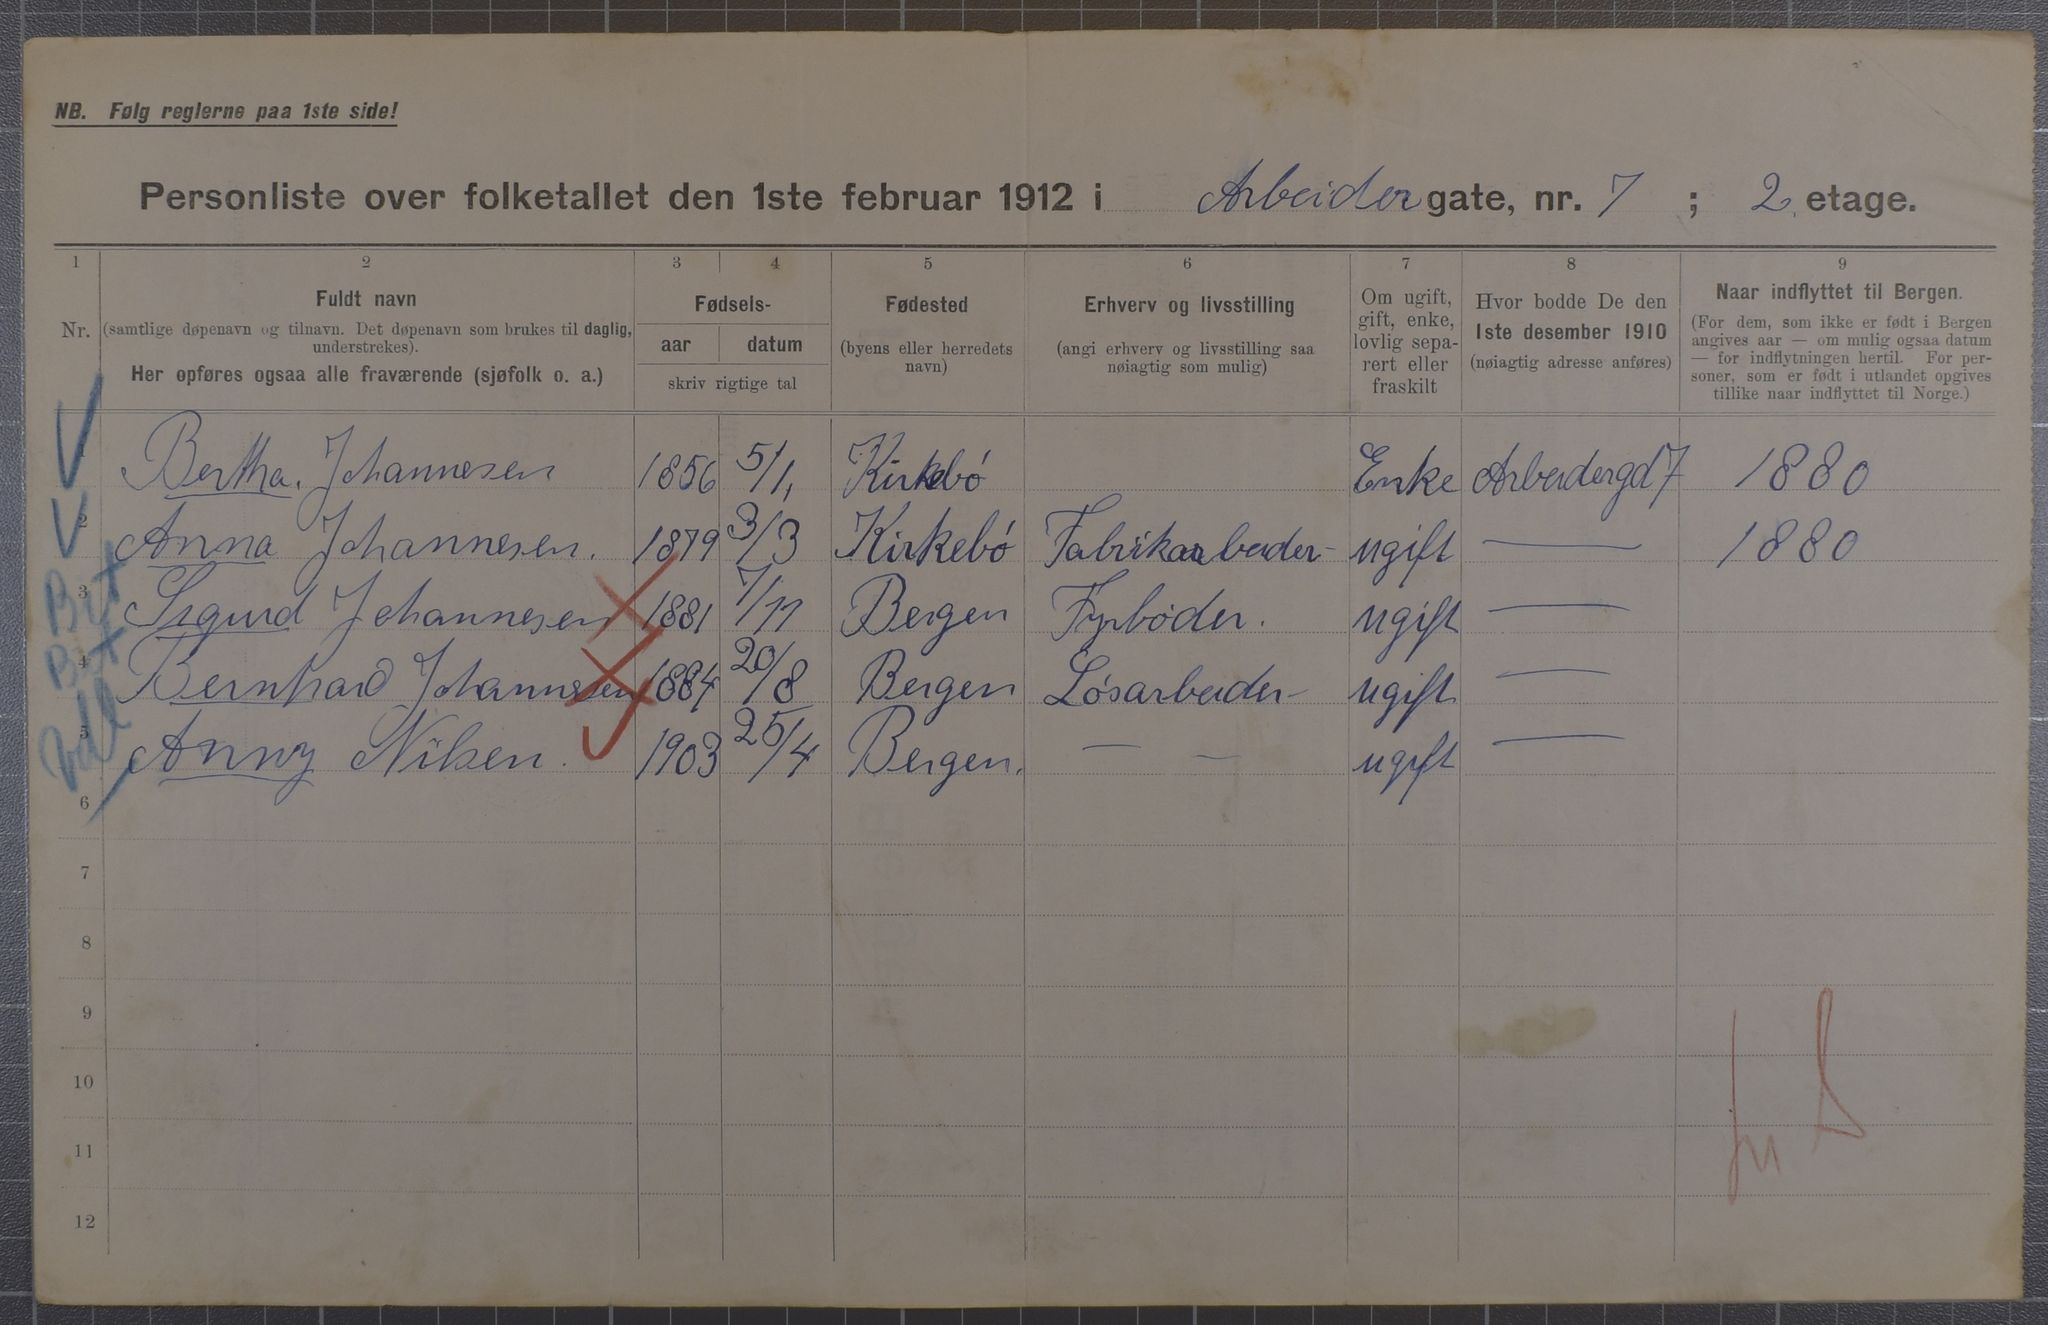 NB. Følg reglerne paa 1ste side!
Personliste over folketallet den 1ste februar 1912 i Arbeider gate, nr. 7 ; 2 etage.
1 2 3 4 5 6 7 8 9
Nr.
Fuldt navn
(samtlige døpenavn og tilnavn. Det døpenavn som brukes til daglig,
understrekes).
Her opføres ogsaa alle fraværende (sjøfolk o. a.)
Fødsels-
aar datum
skriv rigtige tal
Fødested
(byens eller herredets
navn)
Erhverv og livsstilling
(angi erhverv og livsstilling saa
nøiagtig som mulig)
Om ugift,
gift, enke,
lovlig sepa-
rert eller
fraskilt
Hvor bodde De den
1ste desember 1910
(nøiagtig adresse anføres)
Naar indflyttet til Bergen.
(For dem, som ikke er født i Bergen
angives aar — om mulig ogsaa datum
— for indflytningen hertil. For per-
soner, som er født i utlandet opgives
tillike naar indflyttet til Norge.)
1 Bertha. Johannesen 1856 5/1, Kirkebó Enke Arbeidergd 7 1880
2 Anna Johannesen. 1879 3/3 Kirkebó Fabrikarbeider- ugift — 1880
3 Sigurd Johannesen 1881 7/11 Bergen Fyrbóder. ugift —
4 Bernhard Johannesen 1884 20/8 Bergen Lósarbeider- ugift —
5 Anny Nilsen. 1903 25/4 Bergen. — — ugift —
6
7
8
9
10
11
12